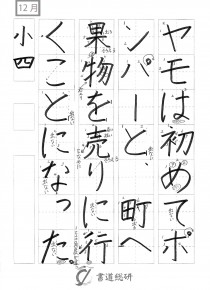 12月
ヤモは初めてホ
ンバーと、町へ
果物を売りに行
くことになった。
小四
書道総研